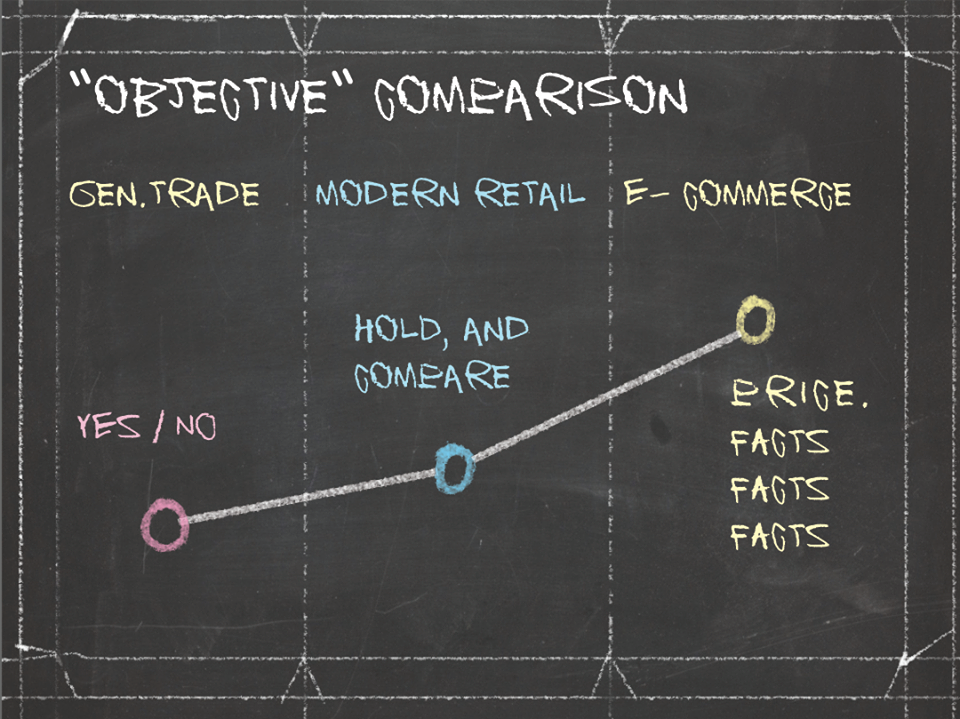 "OBJECTIVE" COMPARISON
GEN.TRADE
MODERN RETAIL
E- COMMERCE
HOLD, AND
COMPARE
YES / NO
PRICE.
FACTS
FACTS
FACTS